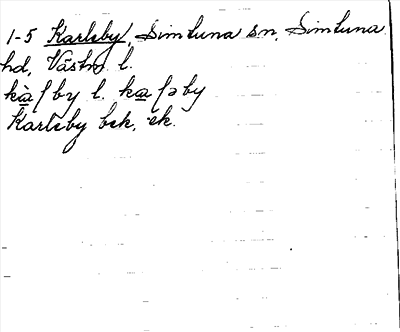 1-5 Karleby, Simtuna sn, Simtuna
hd, Västm. l.
kàʃby l. kaʃəby
Karleby bek, ek.